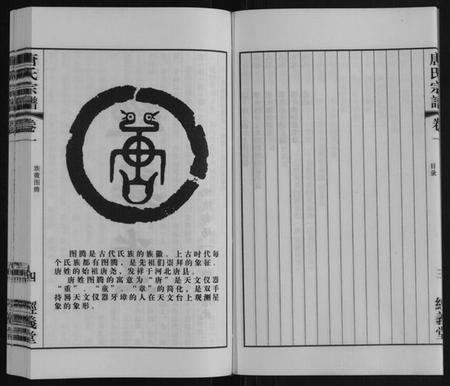 唐氏宗譜
卷一
族徽图腾
四
經義堂
图腾是古代氏族的族徽。上古时代每
个氏族都有图腾,是先祖们崇拜的象征。
唐姓的始祖唐尧,发祥于河北唐县。
唐姓图腾的寓意为“唐”是天文仪器
“重”、“童”、“章”的简化,是双手
持握天文仪器牙璋的人在天文台上观测星
象的象形。
唐氏宗譜
卷一
目录
三
經義堂